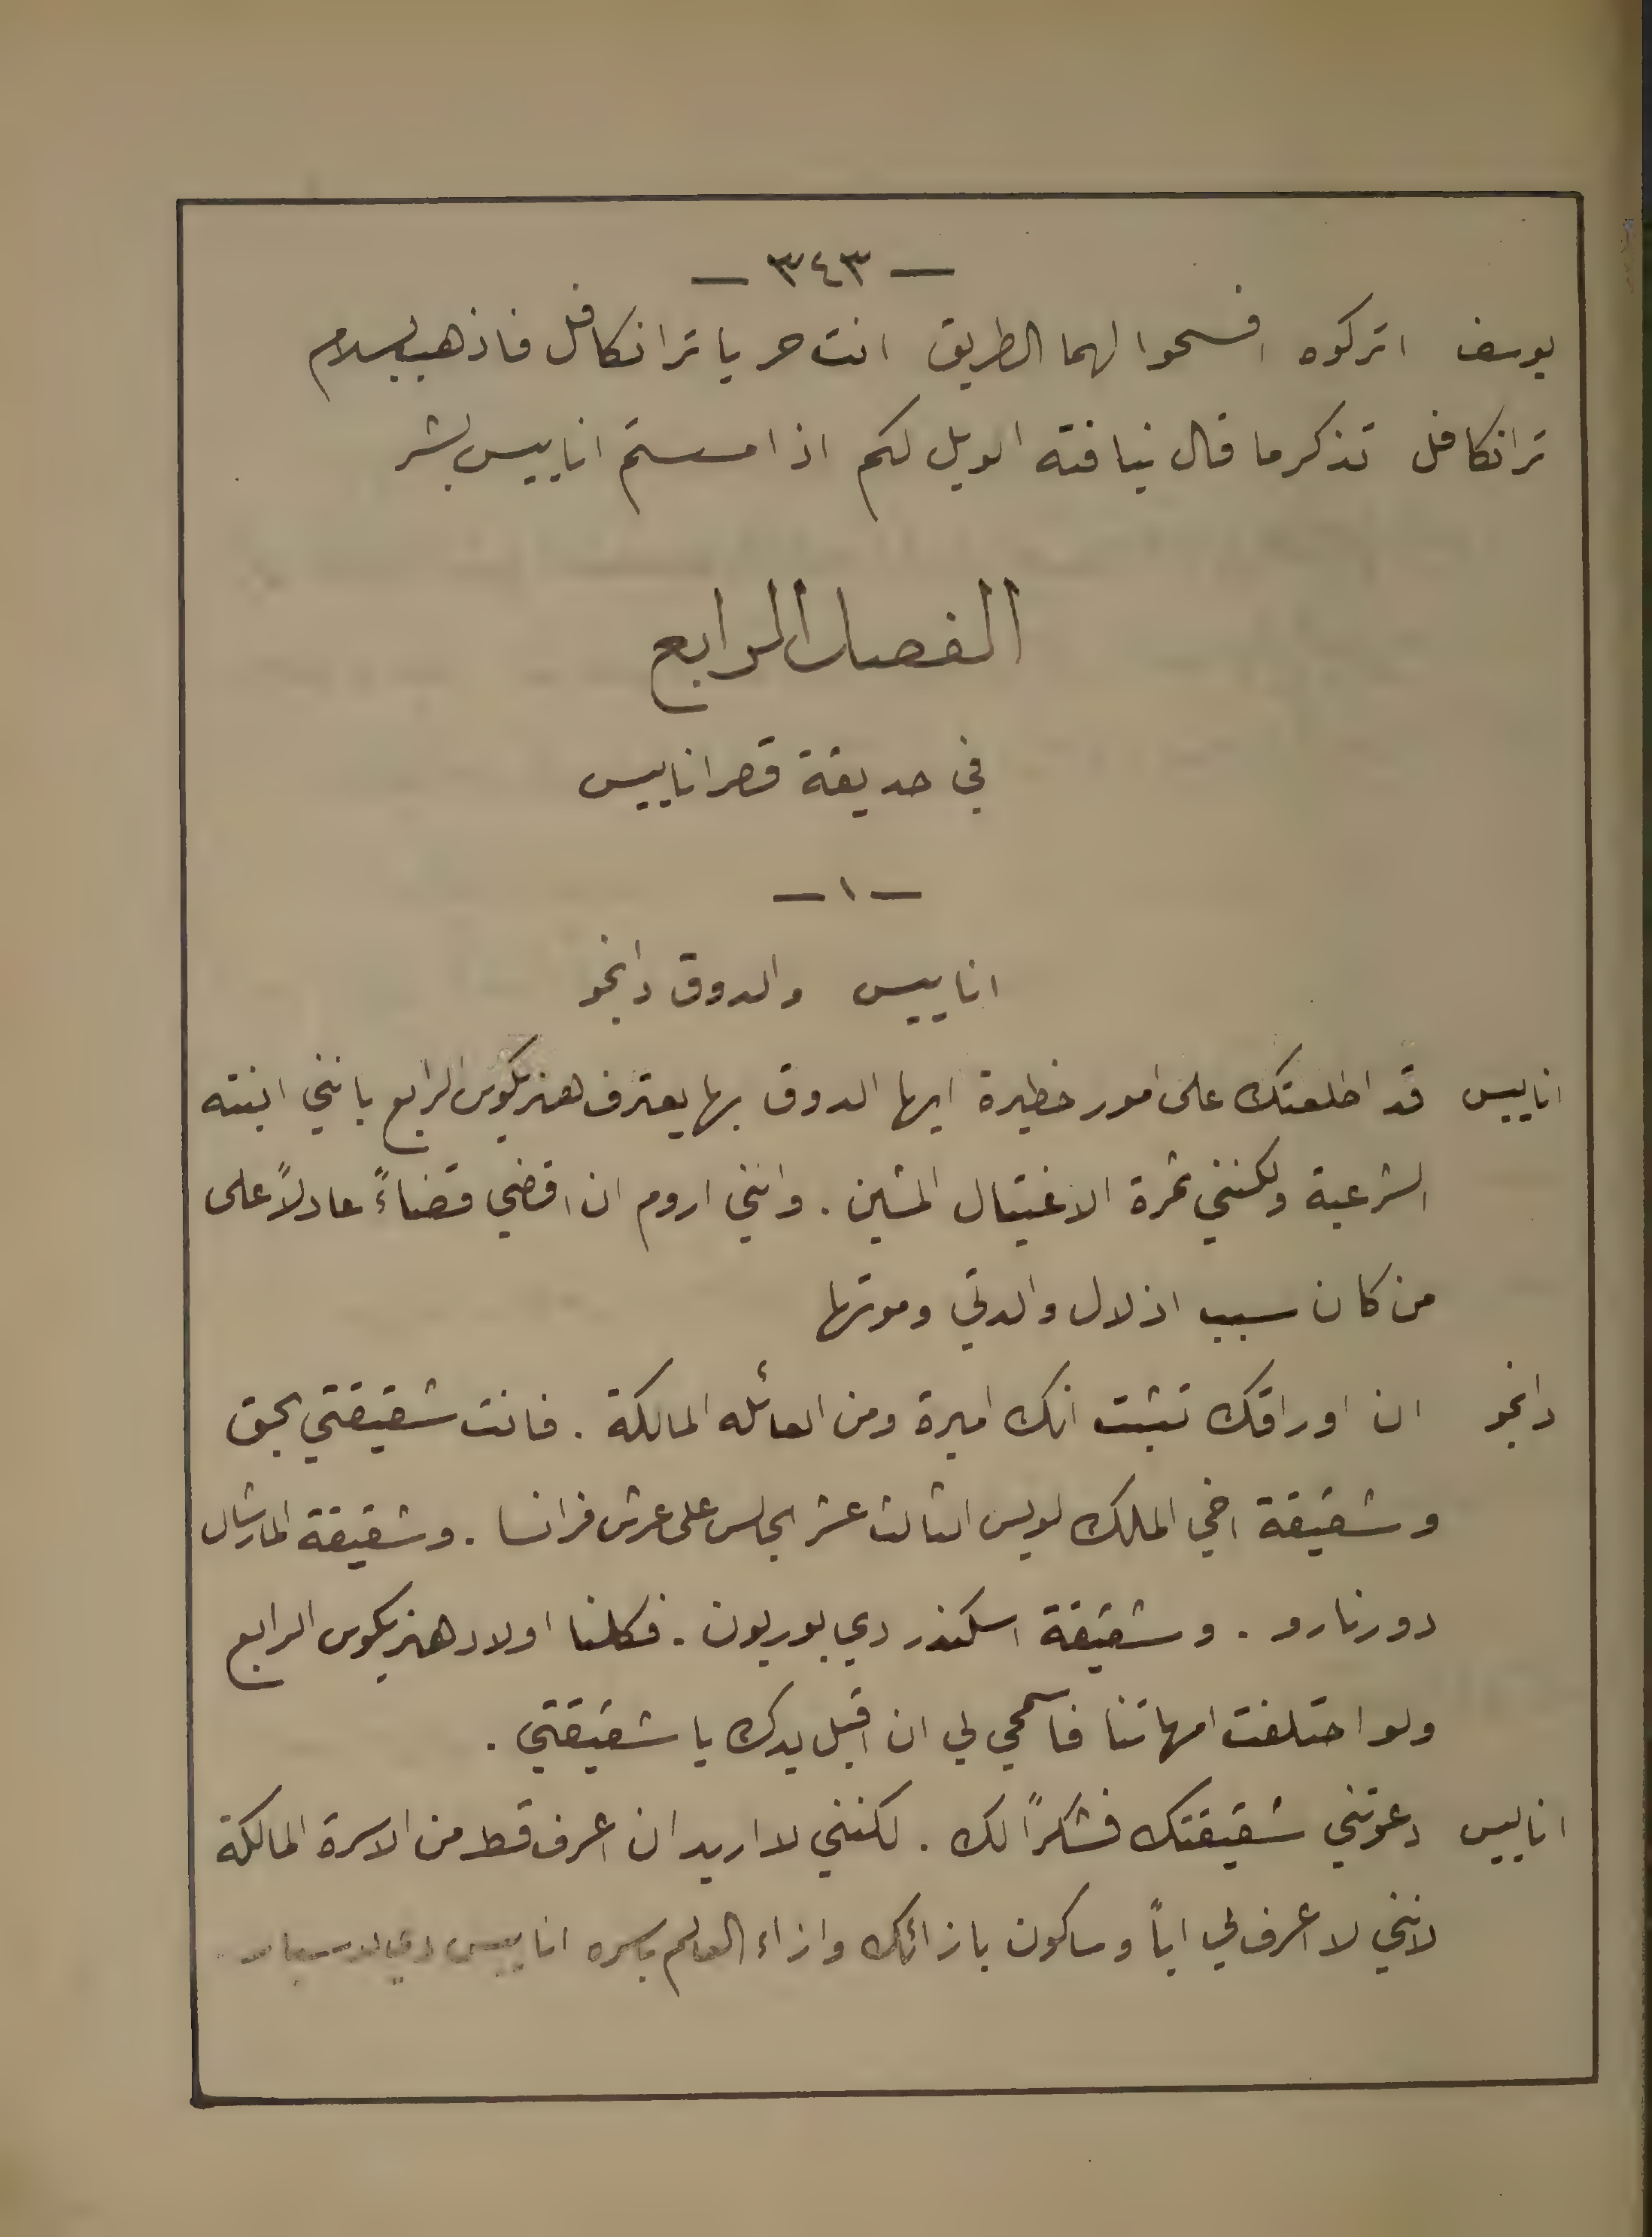 — ٣٤٣ —
يوسف اتركوه افسحوا لهما الطريق انت حر يا ترانكافل فاذهب بسلام
ترانكافل تذكر ما قال نيافته الويل لكم اذا مستم اناييس بشر
الفصل الرابع
في حديقة قصر اناييس
— ١ —
اناييس والدوق دانجو
اناييس قد اطلعتك على امور خطيرة ايها الدوق بها يعترف هنريكوس الرابع بانني ابنته
الشرعية ولكنني ثمرة الاغتيال المشين . وانني اروم ان اقضي قضاءً عادلاً على
من كان سبب اذلال والدتي وموتها
دانجو ان اوراقك تثبت انك اميرة ومن العائله المالكة . فانت شقيقتي بحق
وشقيقة اخي الملك لويس الثالث عشر الجالس على عرش فرانسا . وشقيقة المارشال
دورنارو . وشقيقة اسكندر دي بوربون . فكلنا اولاد هنريكوس الرابع
ولو اختلفت امهاتنا فاسمحي لي ان اقبل يدك يا شقيقتي .
اناييس دعوتني شقيقتك فشكراً لك . لكنني لا اريد ان اعرف قط من الاسرة المالكة
لانني لا اعرف لي اباً وساكون بازائك وازاء العالم باسره اناييس دي